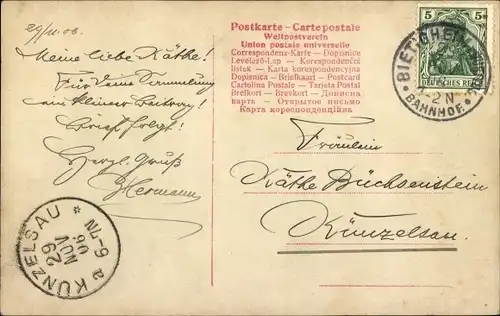 29/11. 06.
Meine liebe Käthe!
Für Deine Sammlung
ein kleiner Beitrag!
Brief folgt!
Herzl. Gruß
Hermann
Postkarte - Carte postale
Weltpostverein
Union postale universelle
Correspondenz-Karte - Dopisnice
Levelező-Lap - Korespondenční
lístek - Karta korespondencyjna
Dopisnica - Briefkaart - Postcard
Cartolina Postale - Tarjeta Postal
Brefkort - Brevkort - Дописна
карта - Открытое письмо
Карта кореспонденційна
5 5
DEUTSCHES REICH
BAHNHOF.
2 N
Fräulein
Käthe Büchsenstein
Künzelsau.
KÜNZELSAU
29
NOV
06
6-7N